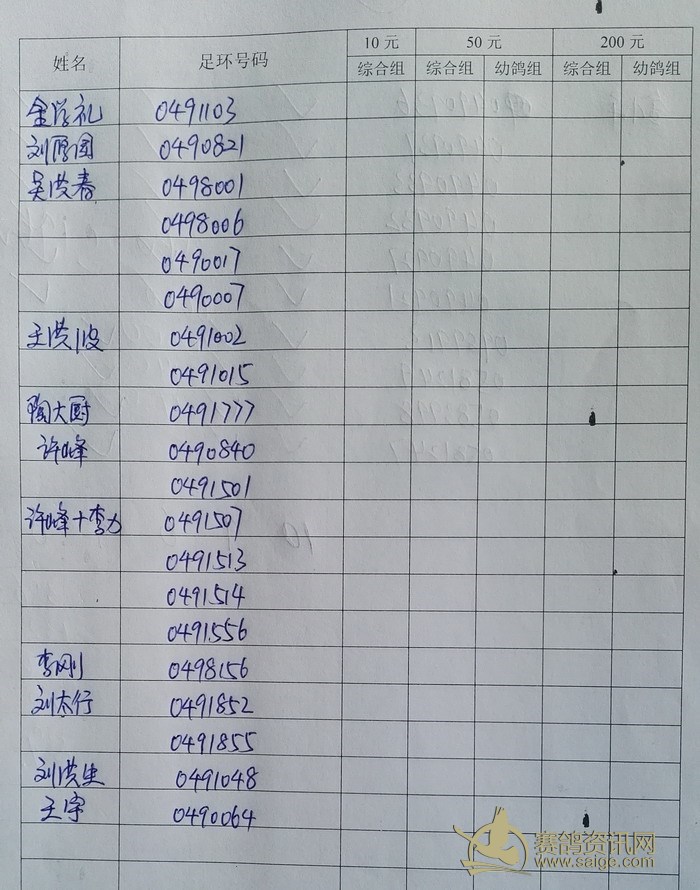 姓名 足环号码 10 元 50 元 200 元
综合组 综合组 幼鸽组 综合组 幼鸽组
金学礼 0491103
刘厚国 0490821
吴洪春 0498001
0498006
0490017
0490007
王洪波 0491002
0491015
陶大厨 0491777
许峰 0490840
0491501
许峰+李力 0491507
0491513
0491514
0491556
李刚 0498156
刘太行 0491852
0491855
刘洪史 0491048
王宇 0490064
赛鸽资讯网
www.saige.com